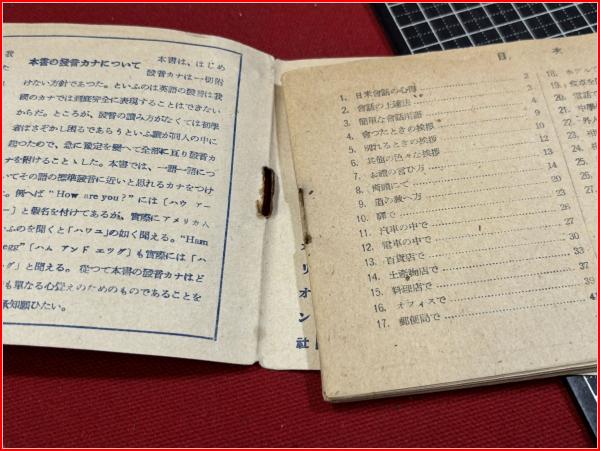 本書の發音カナについて 本書は、はじめ
發音カナは一切附
けない方針であつた。といふのは英語の發音は我
國のカナでは到底完全に表現することはできない
からだ。ところが、發音の讀み方がなくては初學
者はさぞかし困るであらうといふ議が同人の中に
起つたので、急に豫定を變へて全部に亘り發音カ
ナを附けることゝした。本書では、一語一語につ
いてその語の標準發音に近いと思れるカナをつけ
た。例へば "How are you?" には[ハウ アー
ー]と假名を付けてあるが、實際にアメリカ人
いふのを聞くと「ハワユ」の如く聞える。"Ham
egg"[ハム アンド エッグ]も實際には「ハ
グ」と聞える。從つて本書の發音カナはど
も單なる心覺えのためのものであることを
承知願ひたい。
リオン社
目 次
1. 日米會話の心得 2
2. 會話の上達法 3
3. 簡單な會話用語 4
4. 會つたときの挨拶 9
5. 別れるときの挨拶 10
6. 其他の色々な挨拶 12
7. お禮の言ひ方 13
8. 街頭にて 14
9. 道の敎へ方 20
10. 驛で 23
11. 汽車の中で 26
12. 電車の中で 27
13. 百貨店で 30
14. 土産物店で 33
15. 料理店で 37
16. オフィスで 39
17. 郵便局で
18. ホテル
19.
20. 電話で
21.
22.
23.